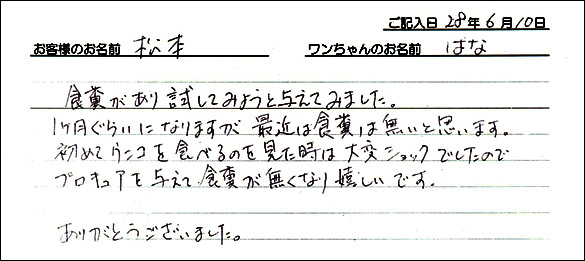 ご記入日 28年 6月10日
お客様のお名前 松本 ワンちゃんのお名前 はな
食糞があり試してみようと与えてみました。
1ヶ月ぐらいになりますが 最近は食糞は無いと思います。
初めてウンコを食べるのを見た時は大変ショックでしたので
プロキュアを与えて食糞が無くなり嬉しいです。
ありがとうございました。